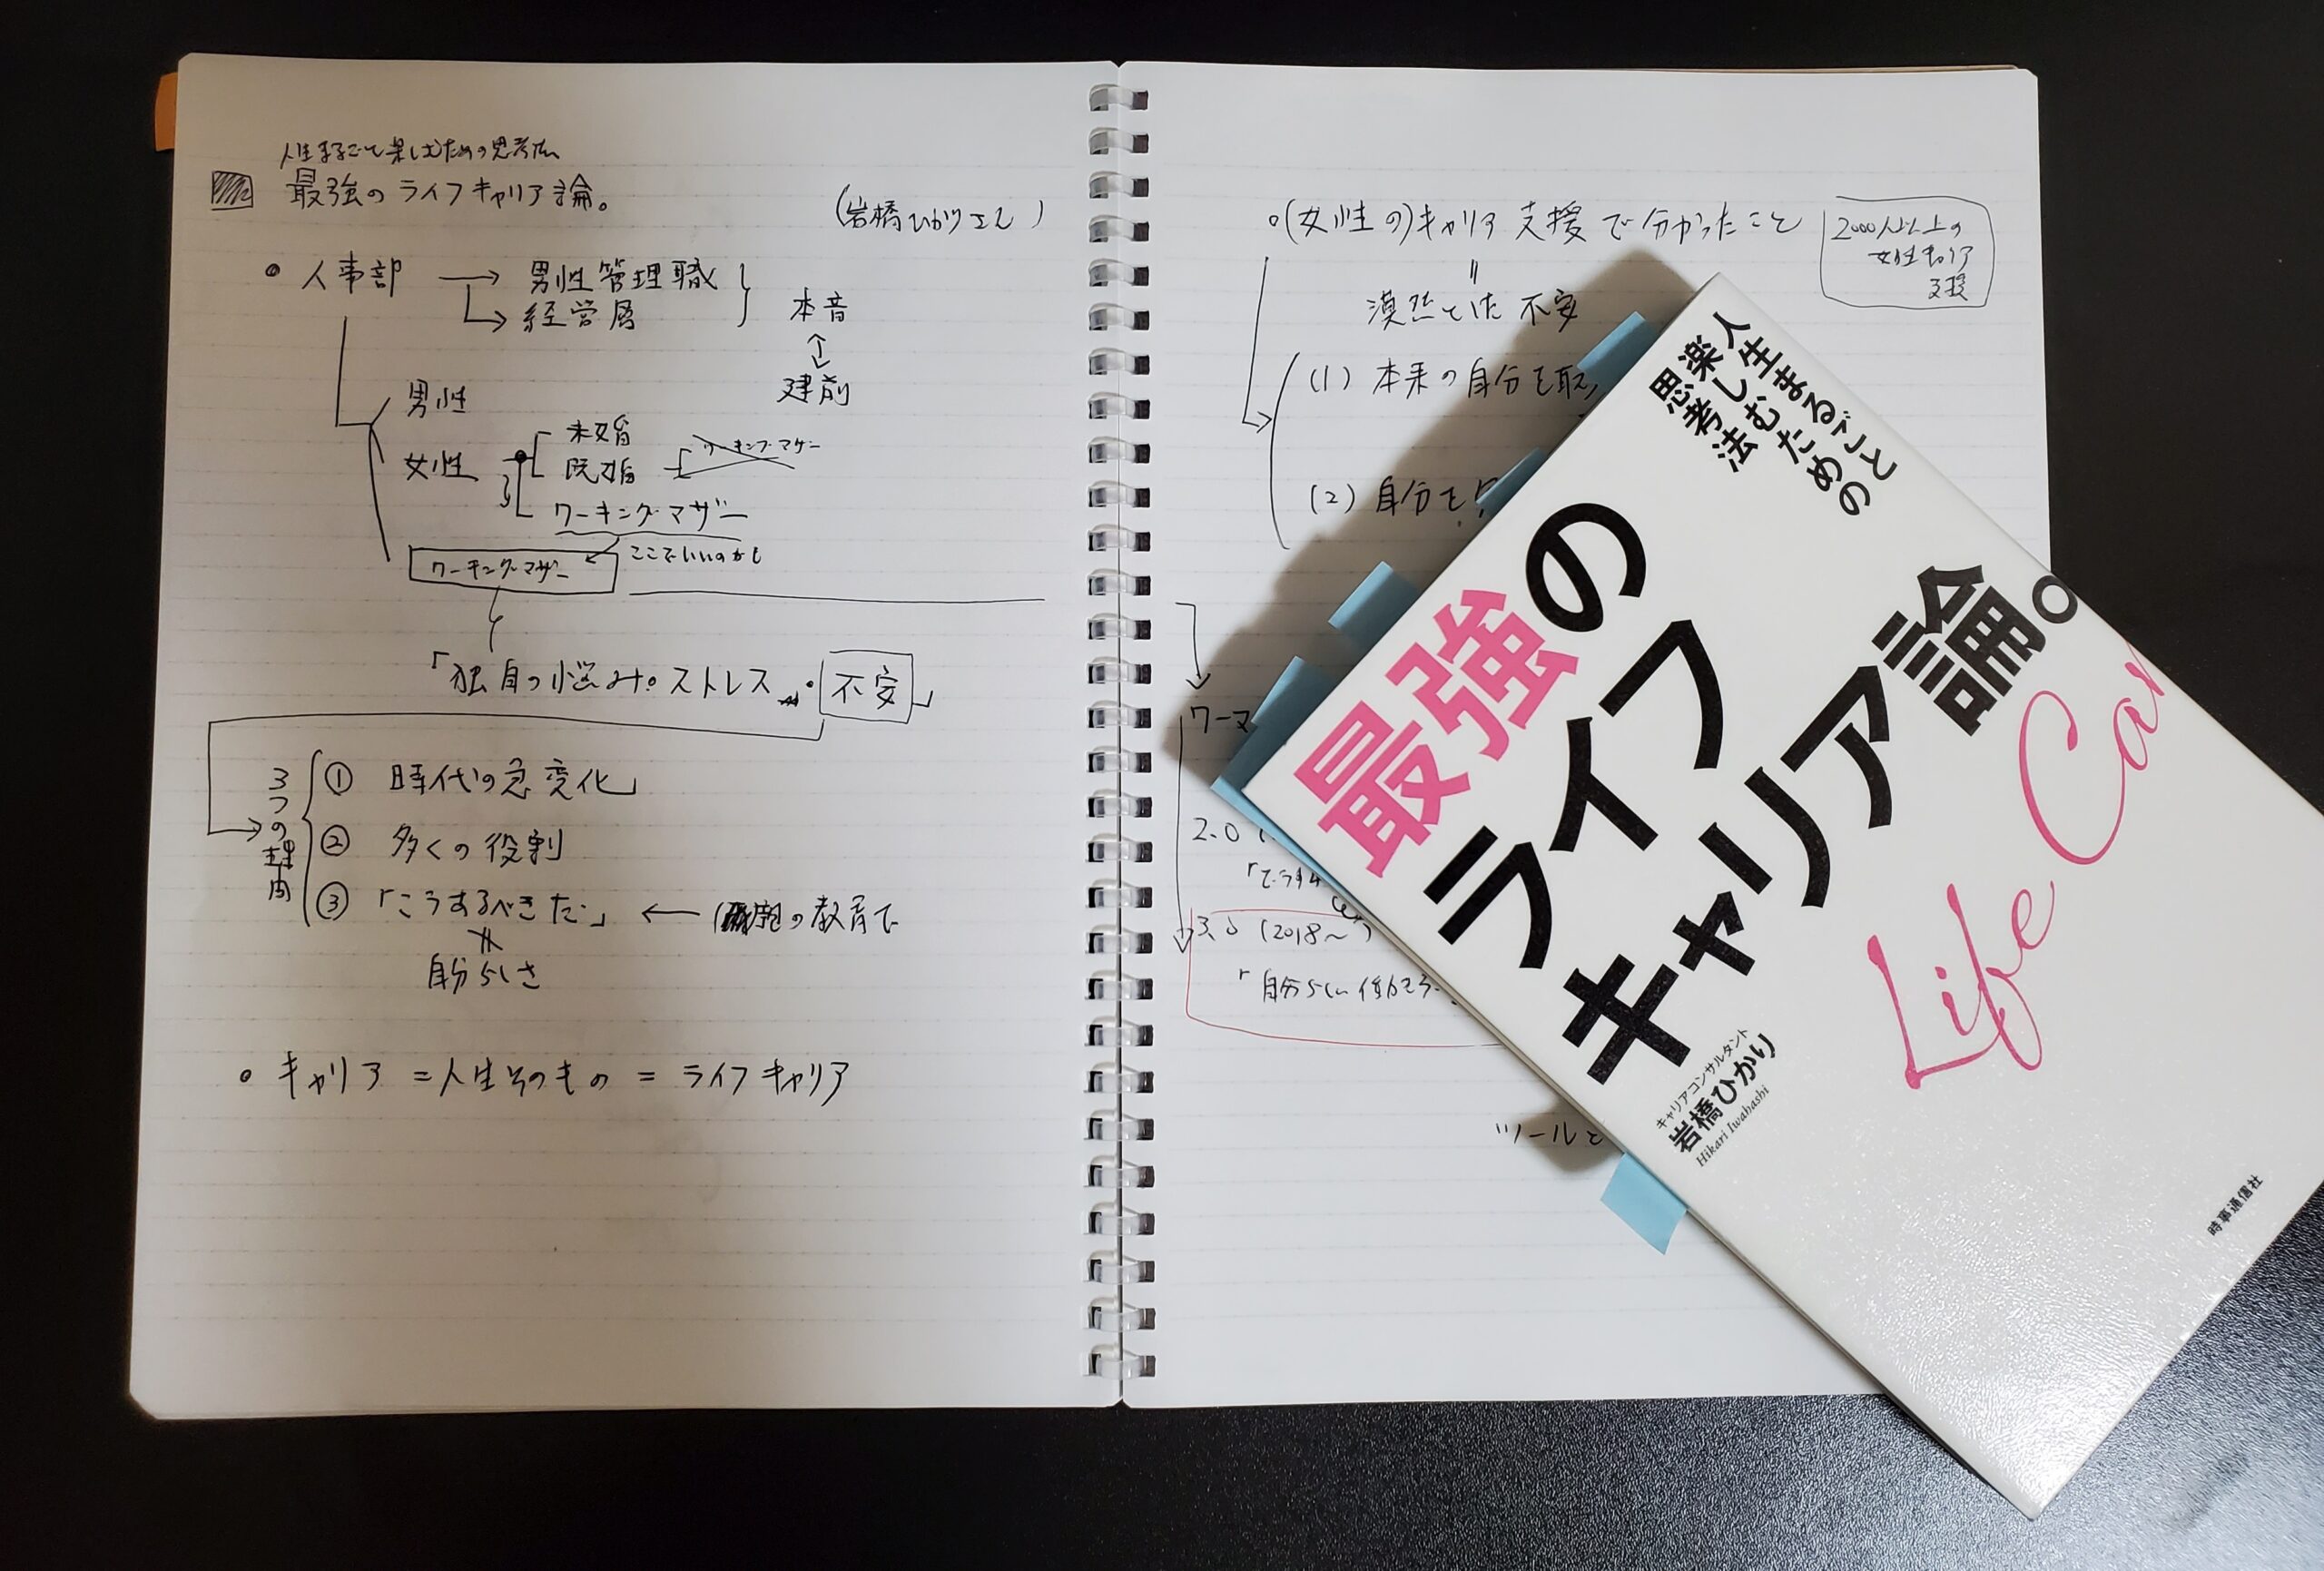 人生まるごと楽しむための思考法
最強のライフキャリア論。
(岩橋ひかりさん)
• 人事部 → 男性管理職
→ 経営層
本音
↕
建前
男性
女性
未婚
既婚
ワーキングマザー
ワーキングマザー
ワーキングマザー
ここでいいのかも
「独自の悩み。ストレス・不安」
3つの理由
① 時代の急変化」
② 多くの役割
③ 「こうするべきだ」 ← の教育で
自分らしさ
• キャリア = 人生そのもの = ライフキャリア
○(女性の)キャリア支援で分かったこと
2000人以上の
女性キャリア
支援
〃
漠然とした不安
(1) 本来の自分を取
(2) 自分を
ワーマ
2.0 (
3.0 (2018〜)
「自分らしい働き方
ツールと
人生まるごと
楽しむための
思考法
最強の
ライフ
キャリア論。
Life Car
キャリアコンサルタント
岩橋ひかり
Hikari Iwahashi
時事通信社